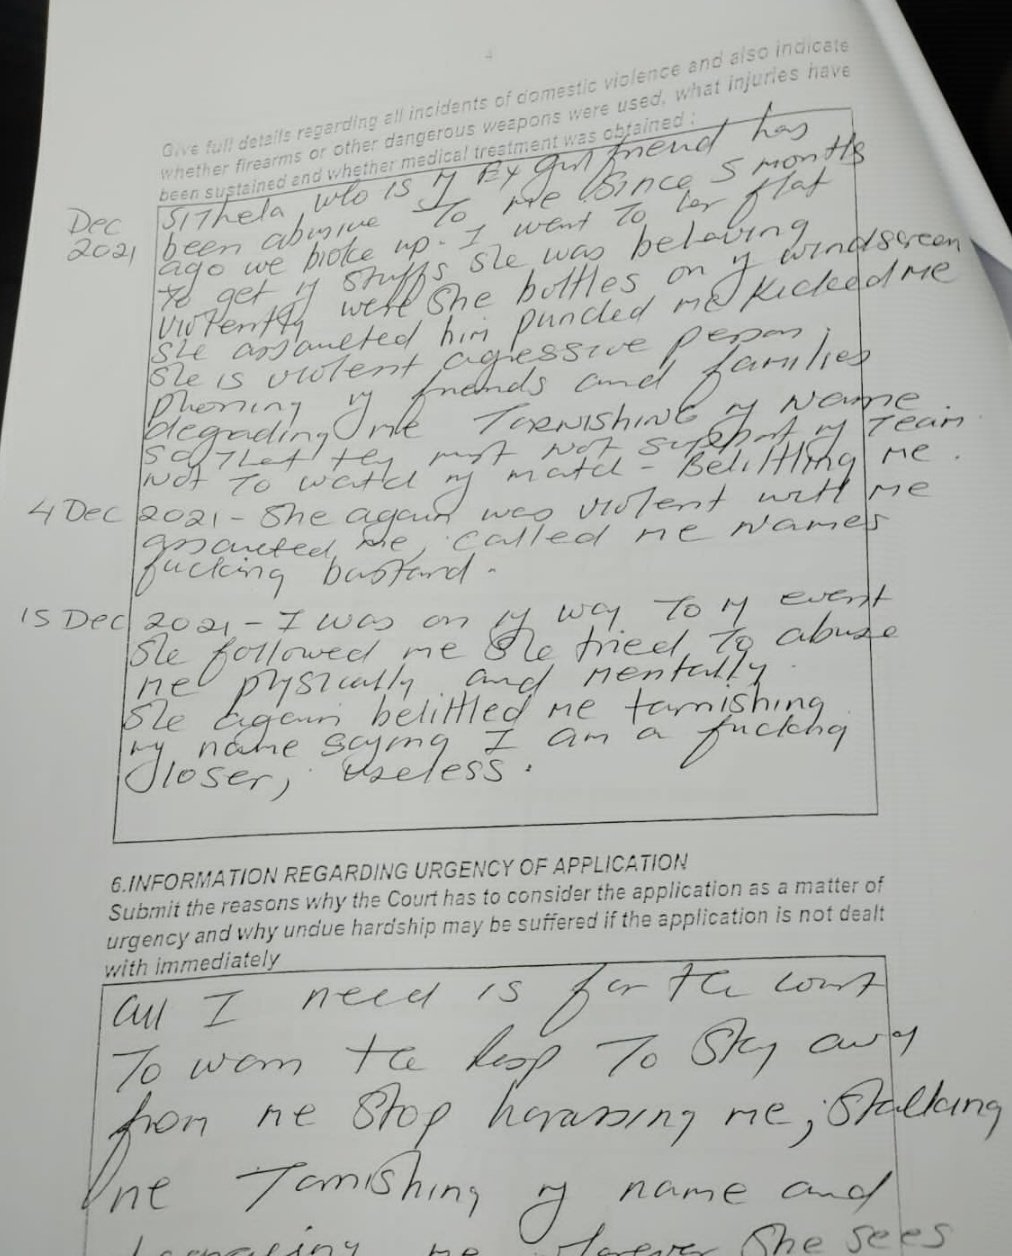 4
Give full details regarding all incidents of domestic violence and also indicate
whether firearms or other dangerous weapons were used, what injuries have
been sustained and whether medical treatment was obtained :
Dec
2021
SIThela who is my Ex girlfriend has
been abusive To me since 5 months
ago we broke up. I went To her flat
To get my stuffs she was behaving
violently were she bottles on my windscreen
she assaulted him punched me kicked me
she is violent agressive person,
phoning my friends and families
degrading me TARNISHING my Name
so That they must not support my Team
not To watch my match - Belittling me.
4 Dec 2021 - She again was violent with me
assaulted me, called me Names
fucking bastard.
15 Dec 2021 - I was on my way To my event
she followed me she tried To abuse
me physically and mentally.
She again belittled me tarnishing
my name saying I am a fucking
loser, useless.
6.INFORMATION REGARDING URGENCY OF APPLICATION
Submit the reasons why the Court has to consider the application as a matter of
urgency and why undue hardship may be suffered if the application is not dealt
with immediately
All I need is for the court
To warn the Resp To Stay away
from me Stop harassing me, Stalking
me Tarnishing my name and
me she sees